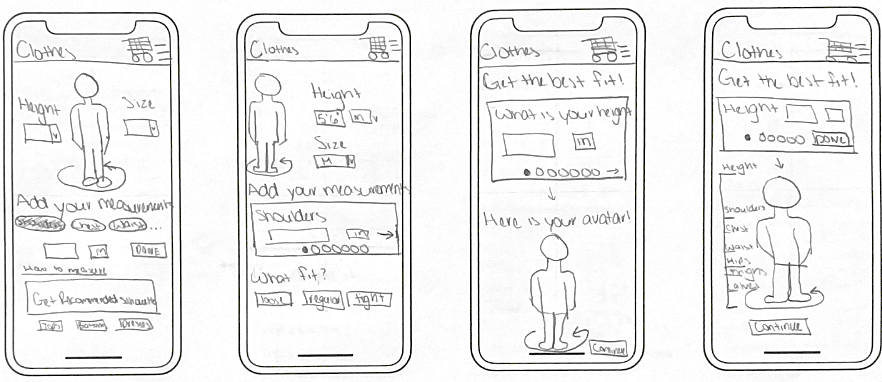 Clothes
Height
Size
Add your measurements
Shoulders Chest Waist ...
in DONE
How to measure
Get Recommended silhouette
Tops Bottoms Dresses
Clothes
Height
5'6" in
Size
M
Add your measurements
Shoulders
in
What fit?
loose regular tight
Clothes
Get the best fit!
What is your height
in
Here is your avatar!
Continue
Clothes
Get the best fit!
Height
DONE
Height
Shoulders
Chest
Waist
Hips
Thighs
Calves
Continue